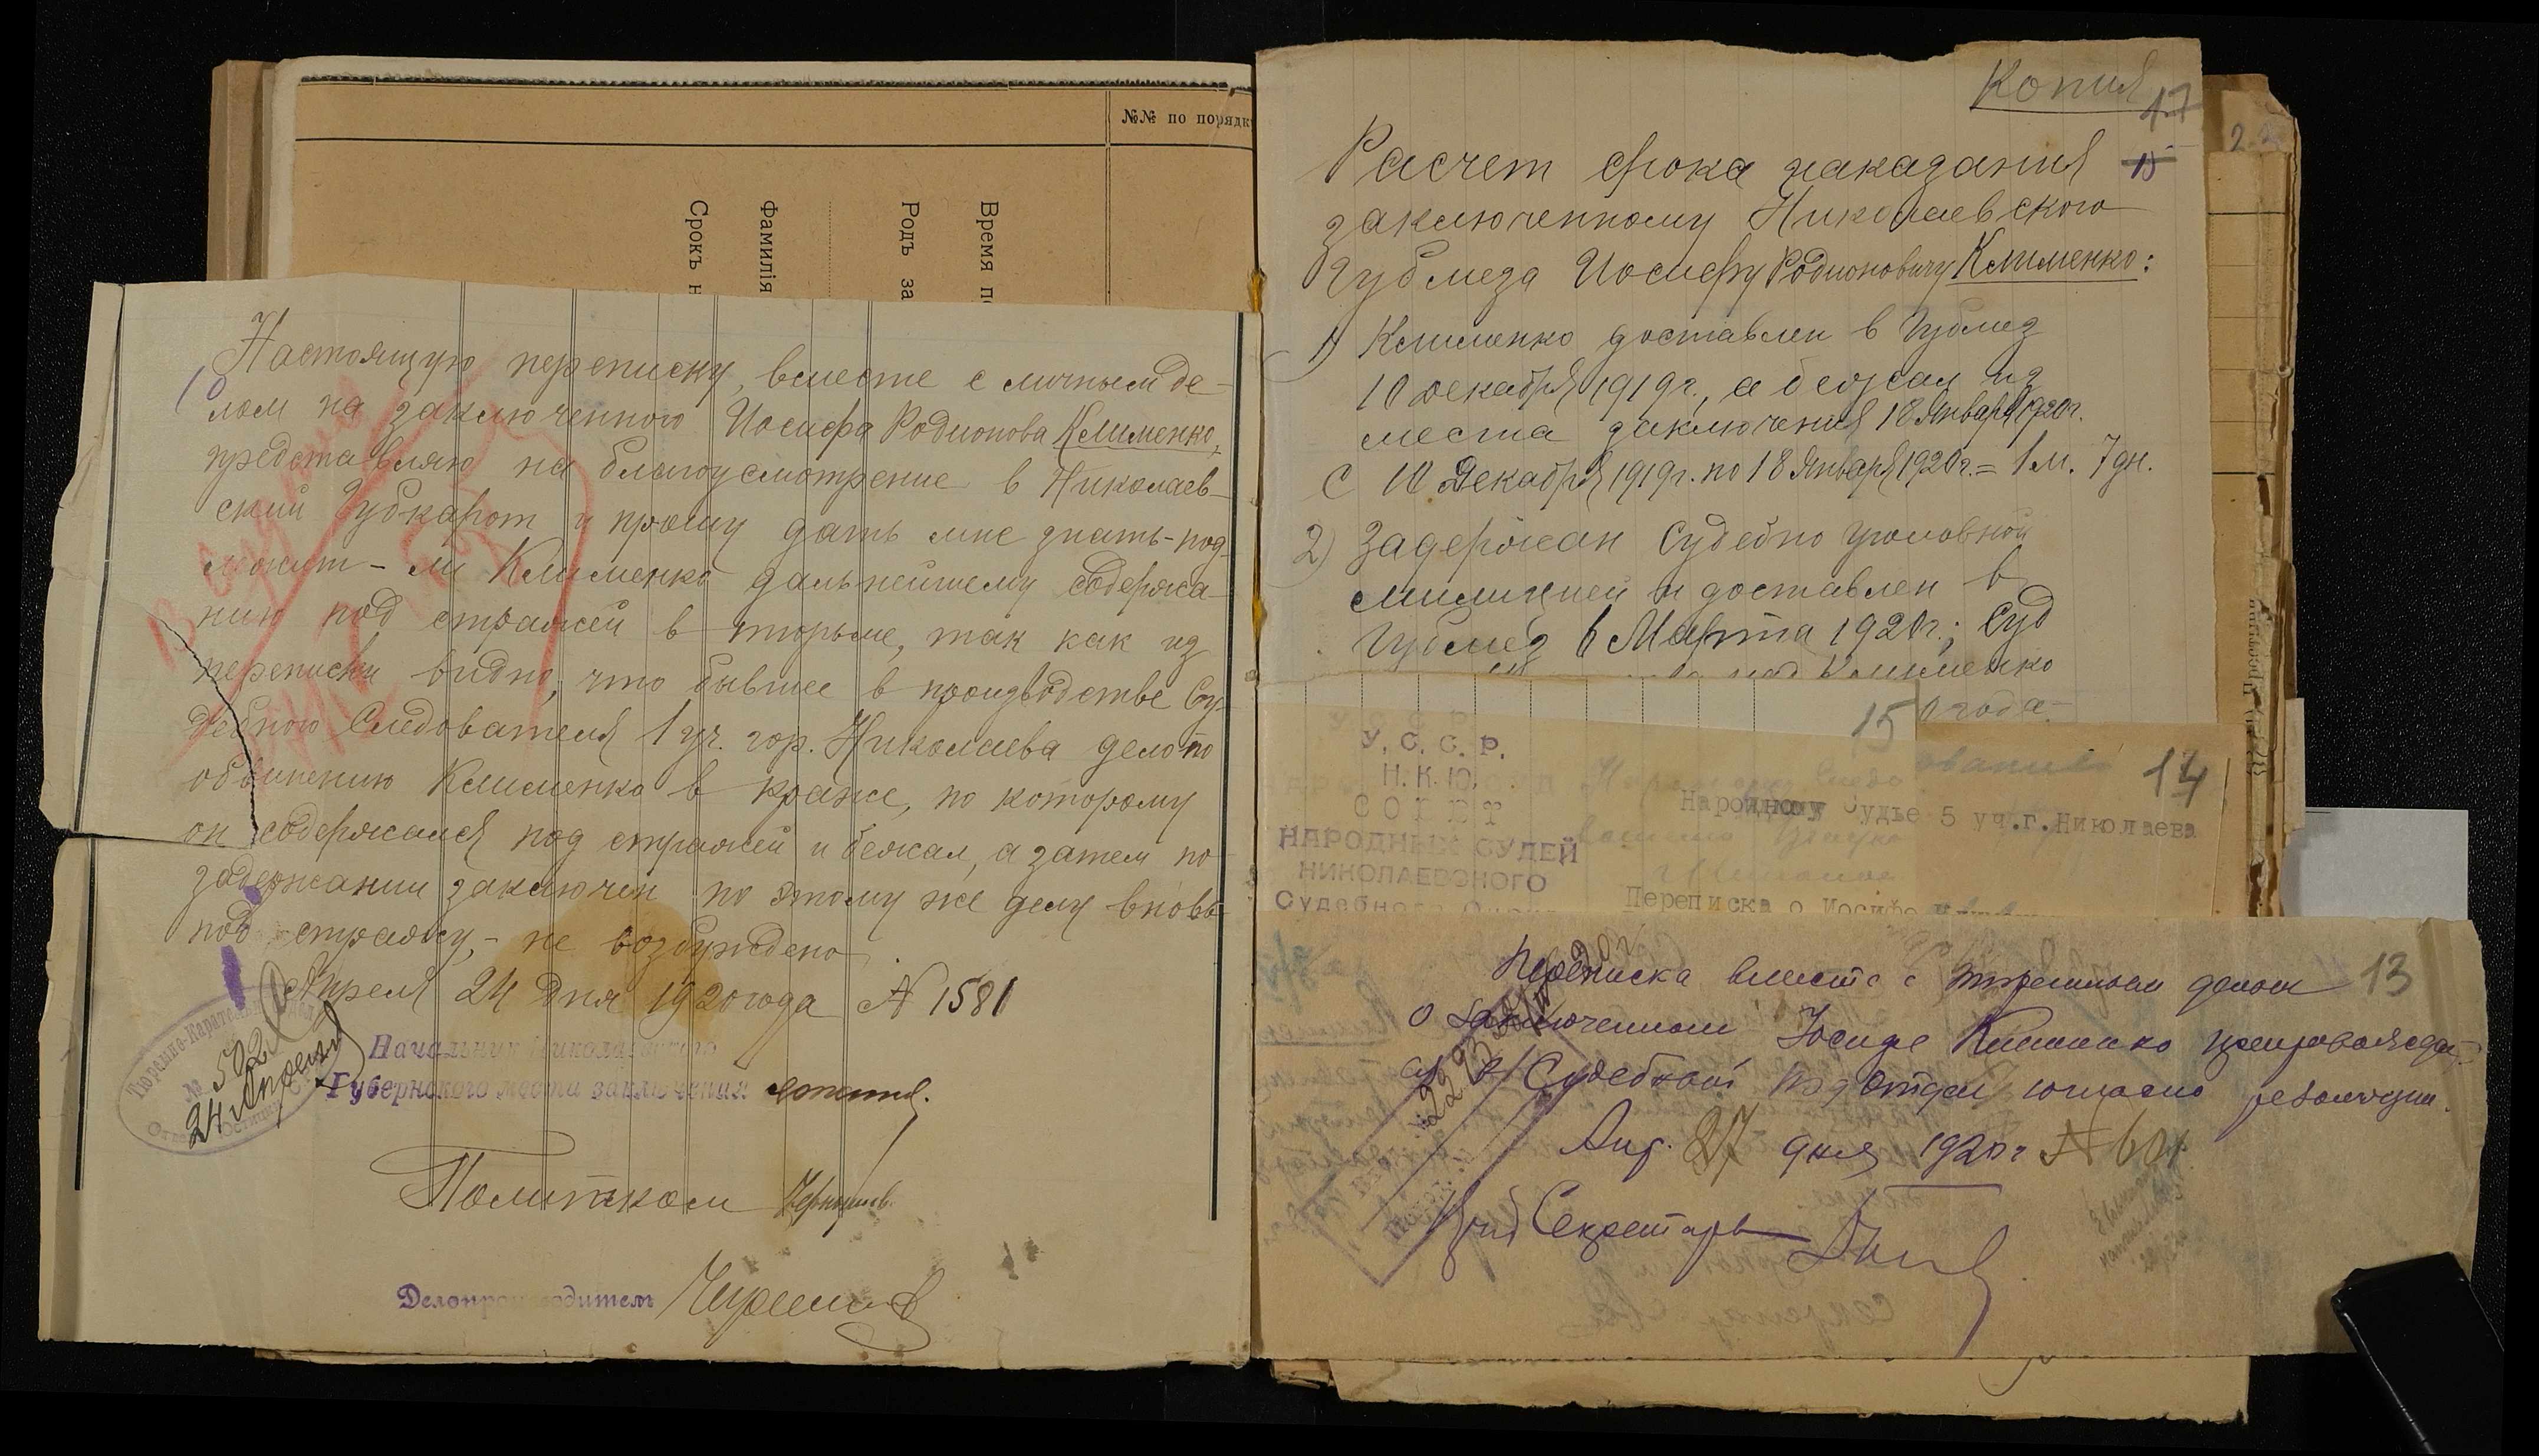 №№ по порядк
Время по
Родъ за
Фамилія
Срокъ н
Настоящую переписку, вместе с личным де-
лом на заключенного Иосифа Родионова Клименко,
представляю на благоусмотрение в Николаев-
ский Губкарот и прошу дать мне знать - под-
лежит - ли Клименко дальнейшему содержа-
нию под стражей в тюрьме, так как из
переписки видно, что бывшее в производстве Су-
дебного Следователя 1 уч. гор. Николаева дело по
обвинению Клименко в краже, по которому
он содержался под стражей и бежал, а затем по
задержании заключен по этому же делу вновь
под стражу, - не возбуждено.
Апреля 24 дня 1920 года № 1581
Начальник Николаевского
Губернского места заключения
Политком
Делопроизводитель
Тюремно-Карательн
№ 502
24 Апреля
Копия
17
15
Расчет срока наказания
заключенному Николаевского
Губмеза Иосифу Родионовичу Клименко:
1) Клименко доставлен в Губмез
10 декабря 1919 г., а бежал из
места заключения 18 Января 1920 г.
С 10 Декабря 1919 г. по 18 Января 1920 г. = 1 м. 7 дн.
2) Задержан Судебно уголовной
милицией и доставлен в
Губмез 6 Марта 1920 г.; Суд
Клименко
года
15
14
У.С.С.Р.
Н.К.Ю.
СОВЕТ
НАРОДНЫХ СУДЕЙ
НИКОЛАЕВСКОГО
Судебного
Народному Судье 5 уч.г.Николаева
Переписка о Иосифе
13
Переписка вместе с тюремным делом
о заключенном Иосифе Клименко препровождает-
ся в Судебный П/отдел согласно резолюции.
Апр. 27 дня 1920 г № 601
Секретарь